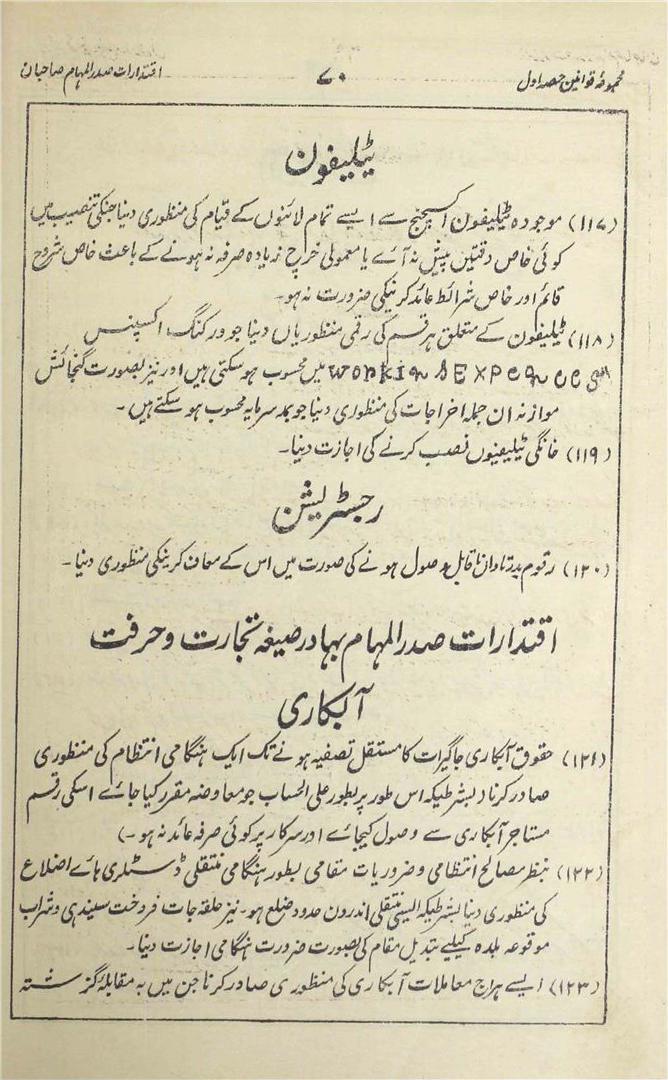 مجموعۂ قوانین حصہ اول
۷۰
اقتدارات صدر المہام صاحبان
ٹیلیفون
(۱۱۷) موجودہ ٹیلیفون اکسچینج سے ایسے تمام لائنوں کے قیام کی منظوری دینا جنکی تنصیب میں
کوئی خاص دقتیں پیش نہ آئے یا معمولی خرچ زیادہ صرفہ نہ ہونے کے باعث خاص شروح
قائم اور خاص شرائط عائد کرنیکی ضرورت نہ ہو۔
(۱۱۸) ٹیلیفون کے متعلق ہر قسم کی رقمی منظوریاں دینا جو ورکنگ اکسپنس
Working Expences میں محسوب ہو سکتی ہیں اور نیز بصورت گنجائش
موازنہ ان جملہ اخراجات کی منظوری دینا جو بمد سرمایہ محسوب ہو سکتے ہیں۔
(۱۱۹) خانگی ٹیلیفیوں نصب کرنے کی اجازت دینا۔
رجسٹریشن
(۱۲۰) رقوم بدر تاوان ناقابل وصول ہونے کی صورت میں اس کے معاف کرنیکی منظوری دینا۔
اقتدارات صدر المہام بہادر صیغہ تجارت و حرفت
آبکاری
(۱۲۱) حقوق آبکاری جاگیرات کا مستقل تصفیہ ہونے تک ایک ہنگامی انتظام کی منظوری
صادر کرنا (بشرطیکہ اس طور پر بطور علی الحساب جو معاوضہ مقرر کیا جائے اسکی رقم
مستاجر آبکاری سے وصول کیجائے اور سرکار پر کوئی صرفہ عائد نہ ہو۔)
(۱۲۲) بنظر مصالح انتظامی و ضروریات مقامی بطور ہنگامی منتقلی ڈسٹلری ہائے اضلاع
کی منظوری دینا بشرطیکہ ایسی منتقلی اندرون حدود ضلع ہو۔ نیز حلقہ جات فروخت سیندھی و شراب
موقوعہ بلدہ کیلیے تبدیل مقام کی بصورت ضرورت ہنگامی اجازت دینا۔
(۱۲۳) ایسے ہراج معاملات آبکاری کی منظوری صادر کرنا جن میں بہ مقابلۂ گزشتہ